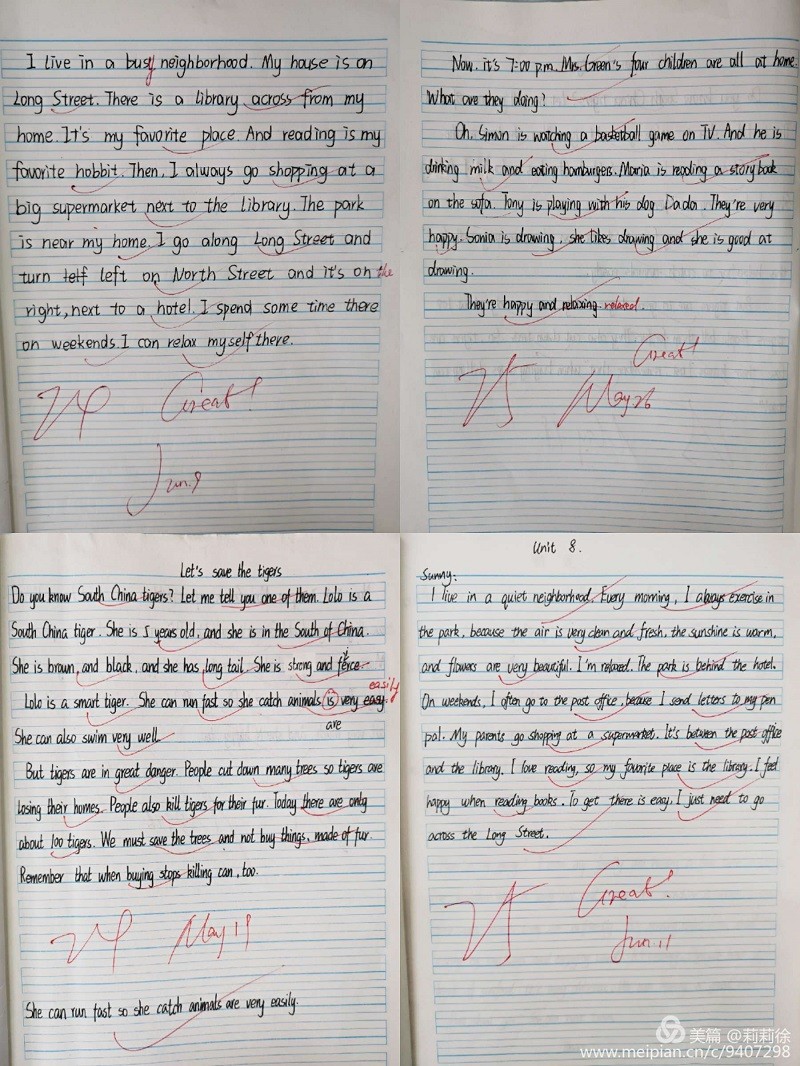 I live in a busy neighborhood. My house is on
Long Street. There is a library across from my
home. It's my favorite place. And reading is my
favorite hobbit. Then, I always go shopping at a
big supermarket next to the library. The park
is near my home. I go along Long Street and
turn left on North Street and it's on the
right, next to a hotel. I spend some time there
on weekends. I can relax myself there.
Great!
Jun.9
Now, it's 7:00 p.m. Mrs. Green's four children are all at home.
What are they doing?
Oh. Simon is watching a basketball game on TV. And he is
drinking milk and eating hamburgers. Maria is reading a storybook
on the sofa. Tony is playing with his dog Dada. They're very
happy. Sonia is drawing, she likes drawing and she is good at
drawing.
They're happy and relaxing. relaxed.
Great!
May 26
Let's save the tigers
Do you know South China tigers? Let me tell you one of them. Lolo is a
South China tiger. She is 5 years old, and she is in the South of China.
She is brown, and black, and she has long tail. She is strong and ferce
easily
Lolo is a smart tiger. She can run fast so she catch animals is very easy.
are
She can also swim very well.
But tigers are in great danger. People cut down many trees so tigers are
losing their homes. People also kill tigers for their fur. Today there are only
about 100 tigers. We must save the trees and not buy things, made of fur.
Remember that when buying stops killing can, too.
May 19
She can run fast so she catch animals are very easily.
Unit 8.
Sunny:
I live in a quiet neighborhood. Every morning, I always exercise in
the park, because the air is very clean and fresh, the sunshine is warm,
and flowers are very beautiful. I'm relaxed. The park is behind the hotel.
On weekends, I often go to the post office, becaue I send letters to my pen
pal. My parents go shopping at a supermarket. It's between the post office
and the library. I love reading, so my favorite place is the library. I feel
happy when reading books. To get there is easy. I just need to go
across the Long Street.
Great!
Jun.11
美篇 @莉莉徐
www.meipian.cn/c/9407298